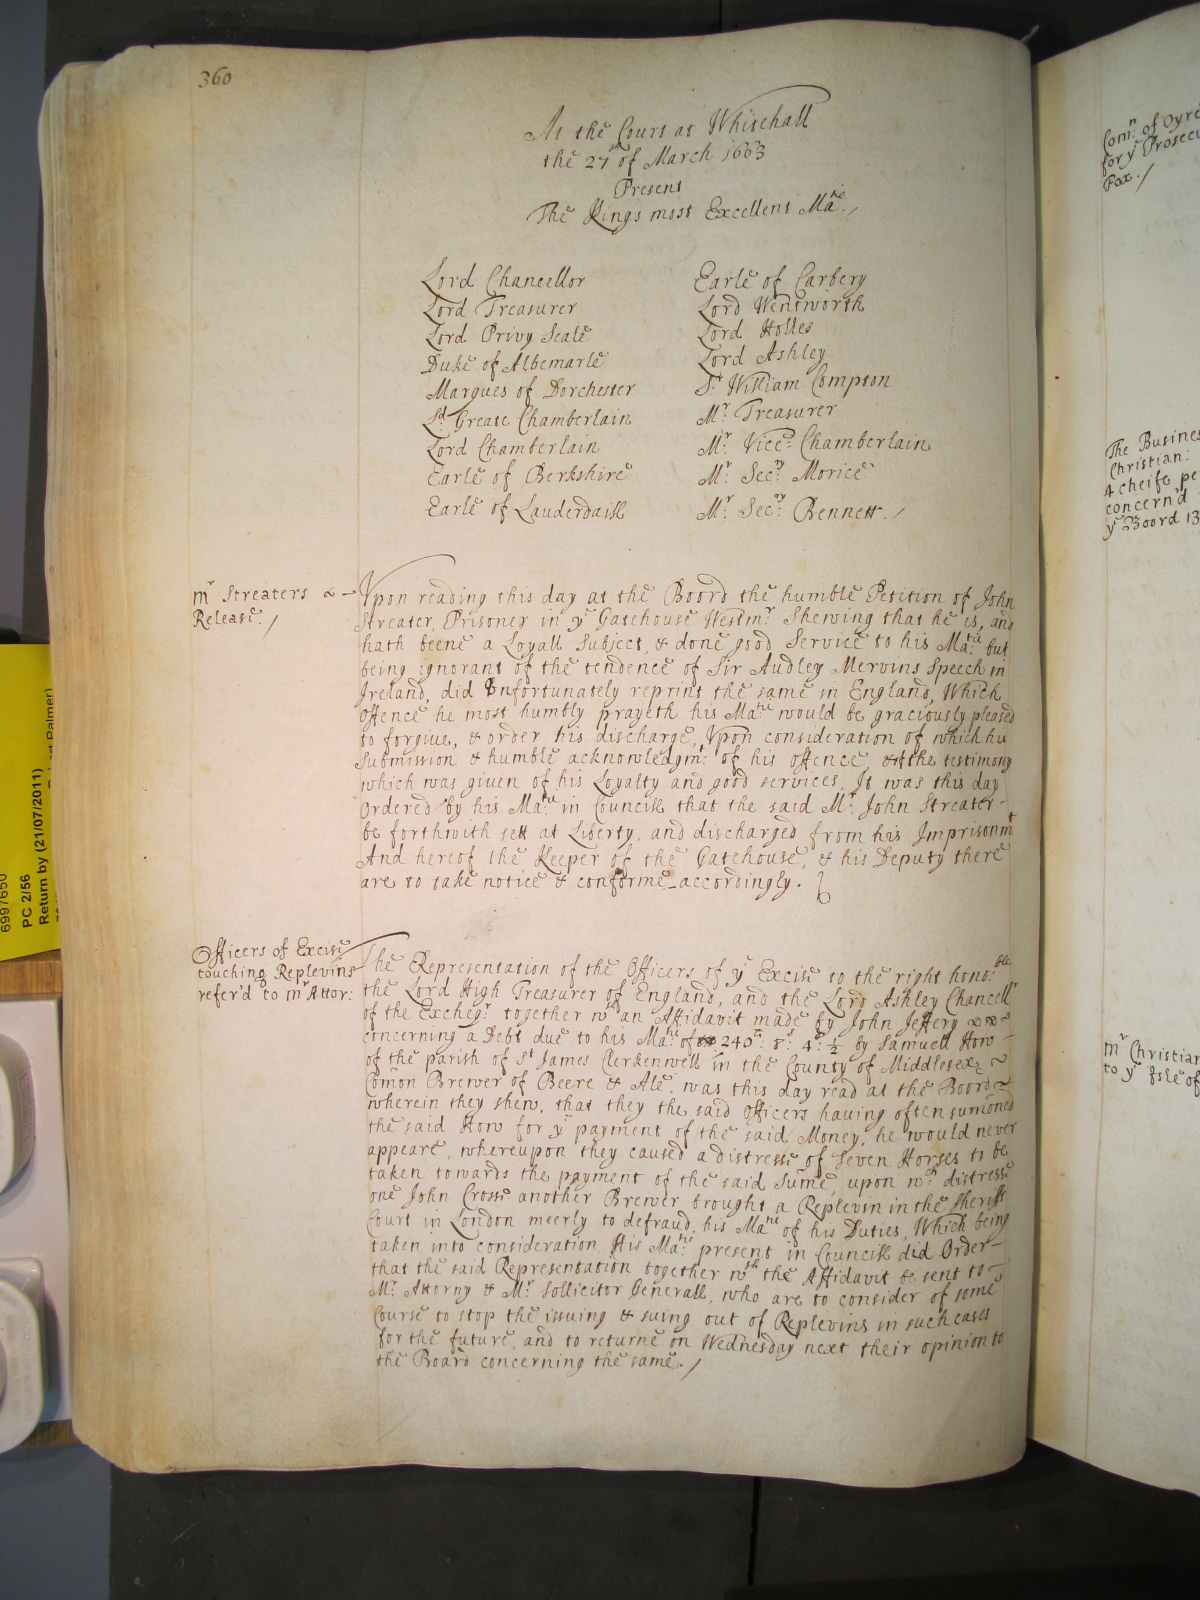 360
At the Court at Whitehall
the 27th of March 1663
Present
The Kings most Excellent Matie./
Lord Chancellor
Lord Treasurer
Lord Privy Seale
Duke of Albemarle
Marques of Dorchester
Ld Greate Chamberlain
Lord Chamberlain
Earle of Berkshire
Earle of Lauderdaill
Earle of Carbery
Lord Wentworth
Lord Holles
Lord Ashley
Sr William Compton
Mr Treasurer
Mr Vice-Chamberlain
Mr Secry Morice
Mr Secry Bennett./
Mr Streaters
Release./
Vpon reading this day at the Boord the humble Petition of John
Streater, Prisoner in ye Gatehouse Westmr Shewing that he is, and
hath beene a Loyall Subject, & done good Service to his Matie but
being ignorant of the tendence of Sir Audley Mervins Speech in
Ireland, did Unfortunately reprint the same in England, Which
Offence he most humbly prayeth his Matie would be graciously pleased
to forgive, & order his discharge, Vpon consideration of which his
Submission & humble acknowledgmt of his offence, & the testimony
which was given of his Loyalty and good services, It was this day
Ordered by his Matie in Councill that the said Mr John Streater-
be forthwith sett at Liberty, and discharged from his Imprisonmt
And hereof the Keeper of the Gatehouse, & his Deputy there
are to take notice & conforme accordingly.
Officers of Excise
touching Replevins
refer'd to mr Attor:
The Representation of the Officers of ye Excise to the right honoble
the Lord High Treasurer of England, and the Lord Ashley Chancellr
of the Excheqr together wth an Affidavit made by John Jeffery
concerning a Debt due to his Matie of 240li: 8s: 4d ½ by Samuell How
of the parish of St James Clerkenwell in the County of Middlesex
Comon Brewer of Beere & Ale, was this day read at the Boord
wherein they shew, that they the said Officers having often sumoned
the said How for ye payment of the said Money, he would never
appeare, whereupon they caused a distresse of Seven Horses to be
taken towards the payment of the said Sume, upon wch distresse
one John Crosse another Brewer brought a Replevin in the Sheriffs
Court in London meerly to defraud his Matie of his Duties, Which being
taken into consideration, His Matie present in Councill did Order-
that the said Representation together wth the Affidavit be sent to-
Mr Attorny & Mr Sollicitor Generall, who are to consider of some
Course to stop the issuing & suing out of Replevins in such cases
for the future, and to returne on Wednesday next their opinion to
the Board concerning the same./
Comn of Oyre
for ye Prosecu
Pax./
The Busines
Christian:
4 cheife pe
concern'd
ye Boord 13
Mr Christian
to ye Isle of
6997650
PC 2/56
Return by (21/07/2011)
Palmer)